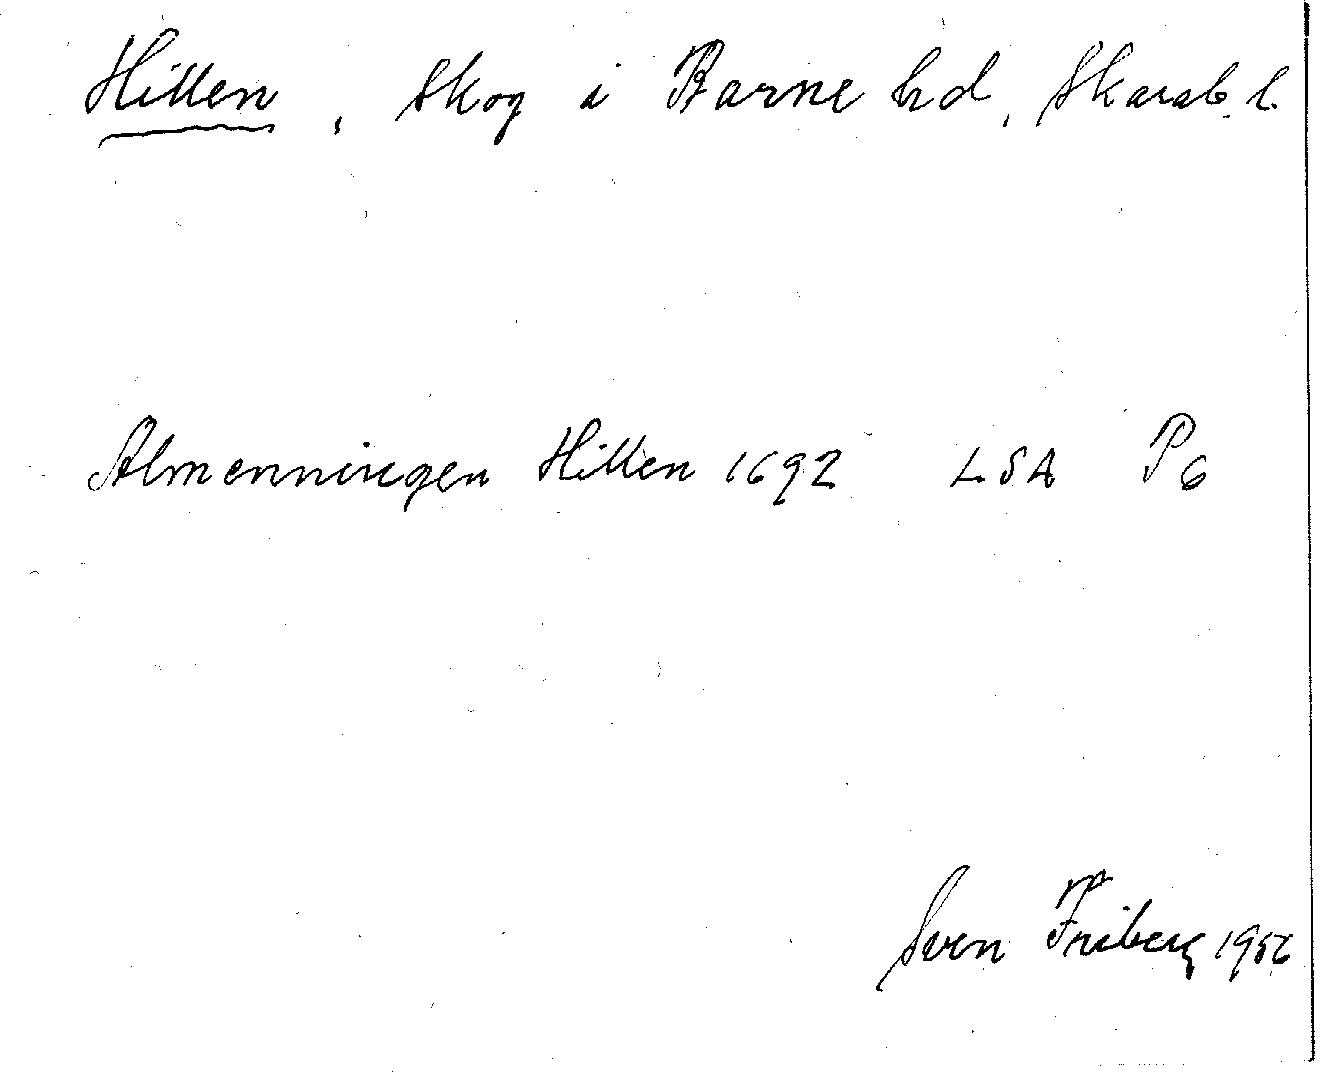 Hillen, skog i Barne hd, Skarab. l.
Almenningen Hillen 1692 LSA P6
Sven Friberg 1956